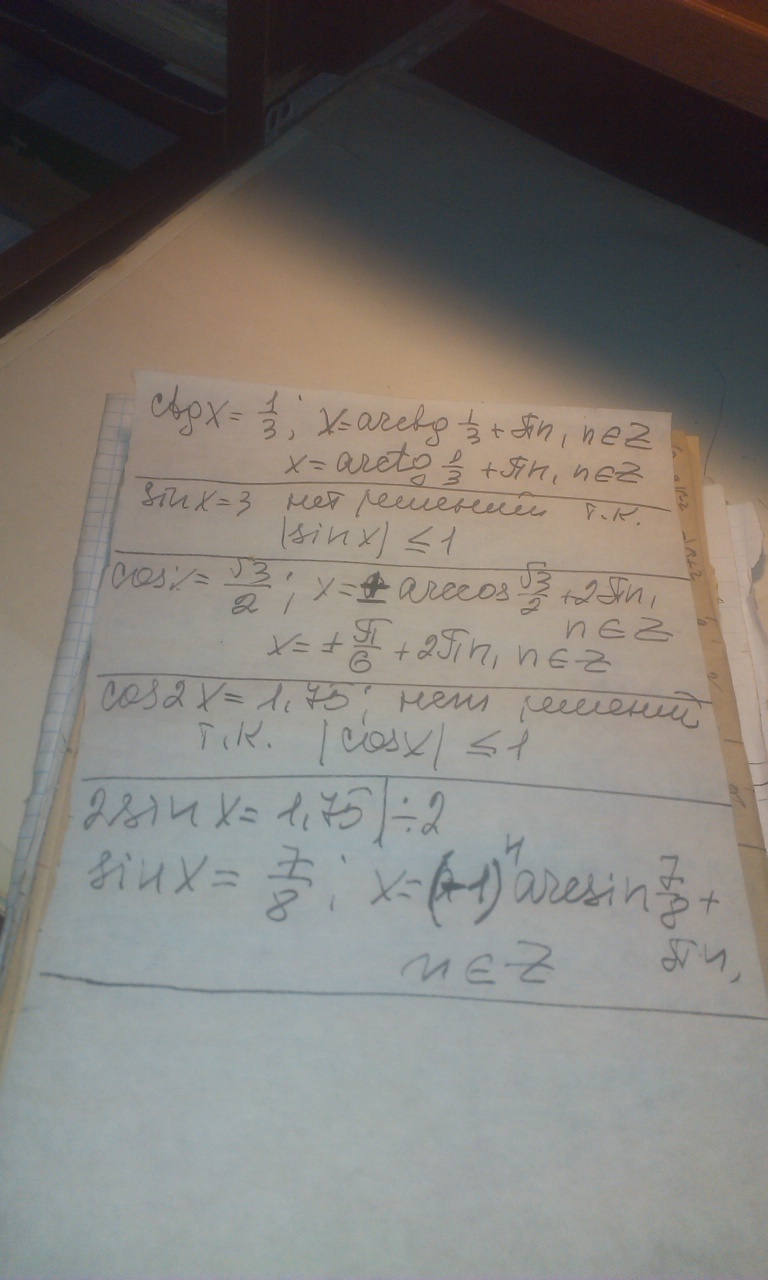 ctgx = 1/3; x = arcctg 1/3 + πn, n∈Z
x = arctg 1/3 + πn, n∈Z
sinx=3 нет решений т.к.
|sinx| ≤ 1
cosx = √3/2; x = ± arccos √3/2 + 2πn,
n∈Z
x = ± π/6 + 2πn, n∈Z
cos2x = 1,75; нет решений
т.к. |cosx| ≤ 1
2sinx = 1,75 | ÷2
sinx = 7/8; x = (-1)ⁿ arcsin 7/8 +
πn,
n∈Z